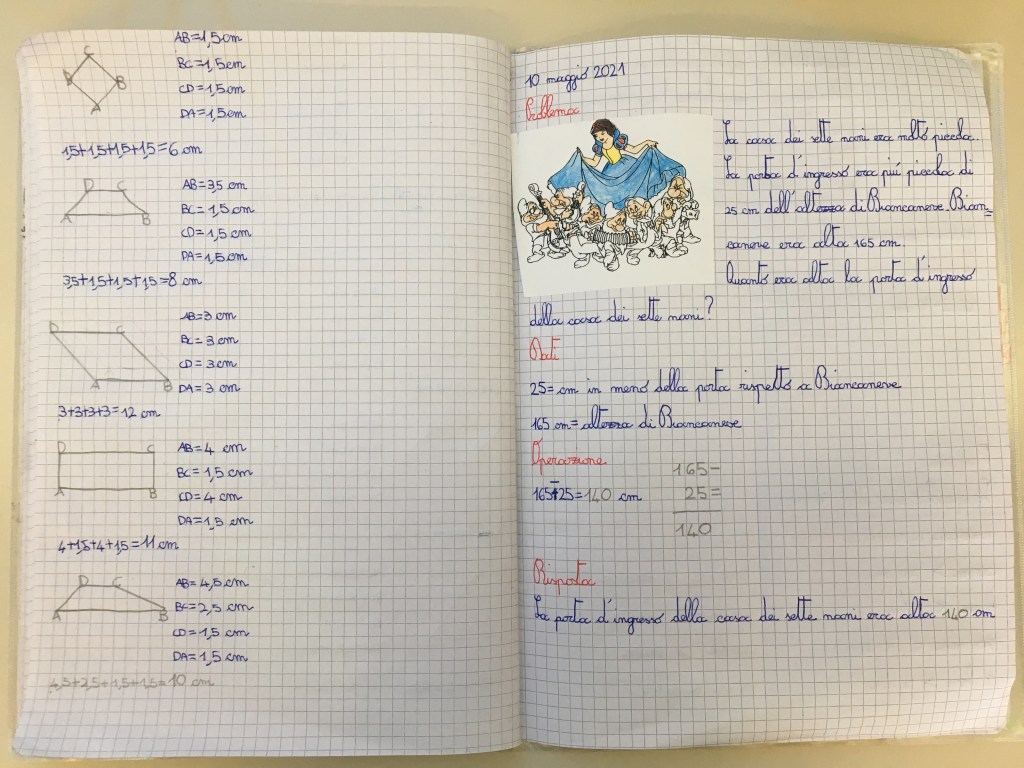 AB=1,5 cm
C
BC=1,5 cm
D B
CD=1,5 cm
A
DA=1,5 cm
1,5+1,5+1,5+1,5=6 cm
D C
AB=3,5 cm
BC=1,5 cm
A B
CD=1,5 cm
DA=1,5 cm
3,5+1,5+1,5+1,5=8 cm
AB=3 cm
D C
BC=3 cm
CD=3 cm
A B
DA=3 cm
3+3+3+3=12 cm
D C
AB=4 cm
BC=1,5 cm
A B
CD=4 cm
DA=1,5 cm
4+1,5+4+1,5=11 cm
D C
AB=4,5 cm
BC=2,5 cm
A B
CD=1,5 cm
DA=1,5 cm
4,5+2,5+1,5+1,5=10 cm
10 maggio 2021
Problema
La casa dei sette nani era molto piccola.
La porta d'ingresso era piú piccola di
25 cm dell'altezza di Biancaneve. Bian=
caneve era alta 165 cm.
Quanto era alta la porta d'ingresso
della casa dei sette nani?
Dati
25= cm in meno della porta rispetto a Biancaneve
165 cm= altezza di Biancaneve
Operazione
165-25=140 cm
165-
25=
140
Risposta
La porta d'ingresso della casa dei sette nani era alta 140 cm